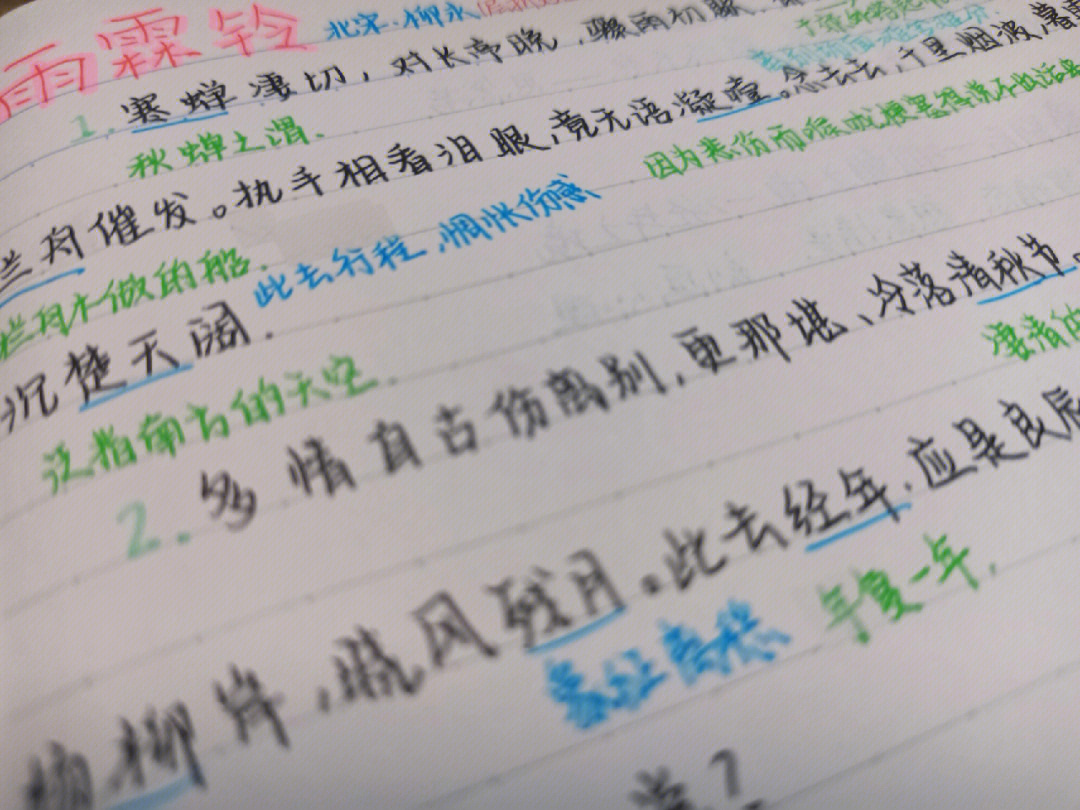 雨霖铃 北宋·柳永
1. 寒蝉凄切，对长亭晚，骤雨初歇
秋蝉之谓.
兰舟催发。执手相看泪眼,竟无语凝噎。念去去,千里烟波,暮
因为悲伤而喉咙梗塞得说不出话
兰舟木做的船. 此去行程,惆怅伤感
沉楚天阔.
泛指南方的天空.
2. 多情自古伤离别,更那堪,冷落清秋节。
凄清
杨柳岸,晓风残月。此去经年.应是良辰
年复一年.